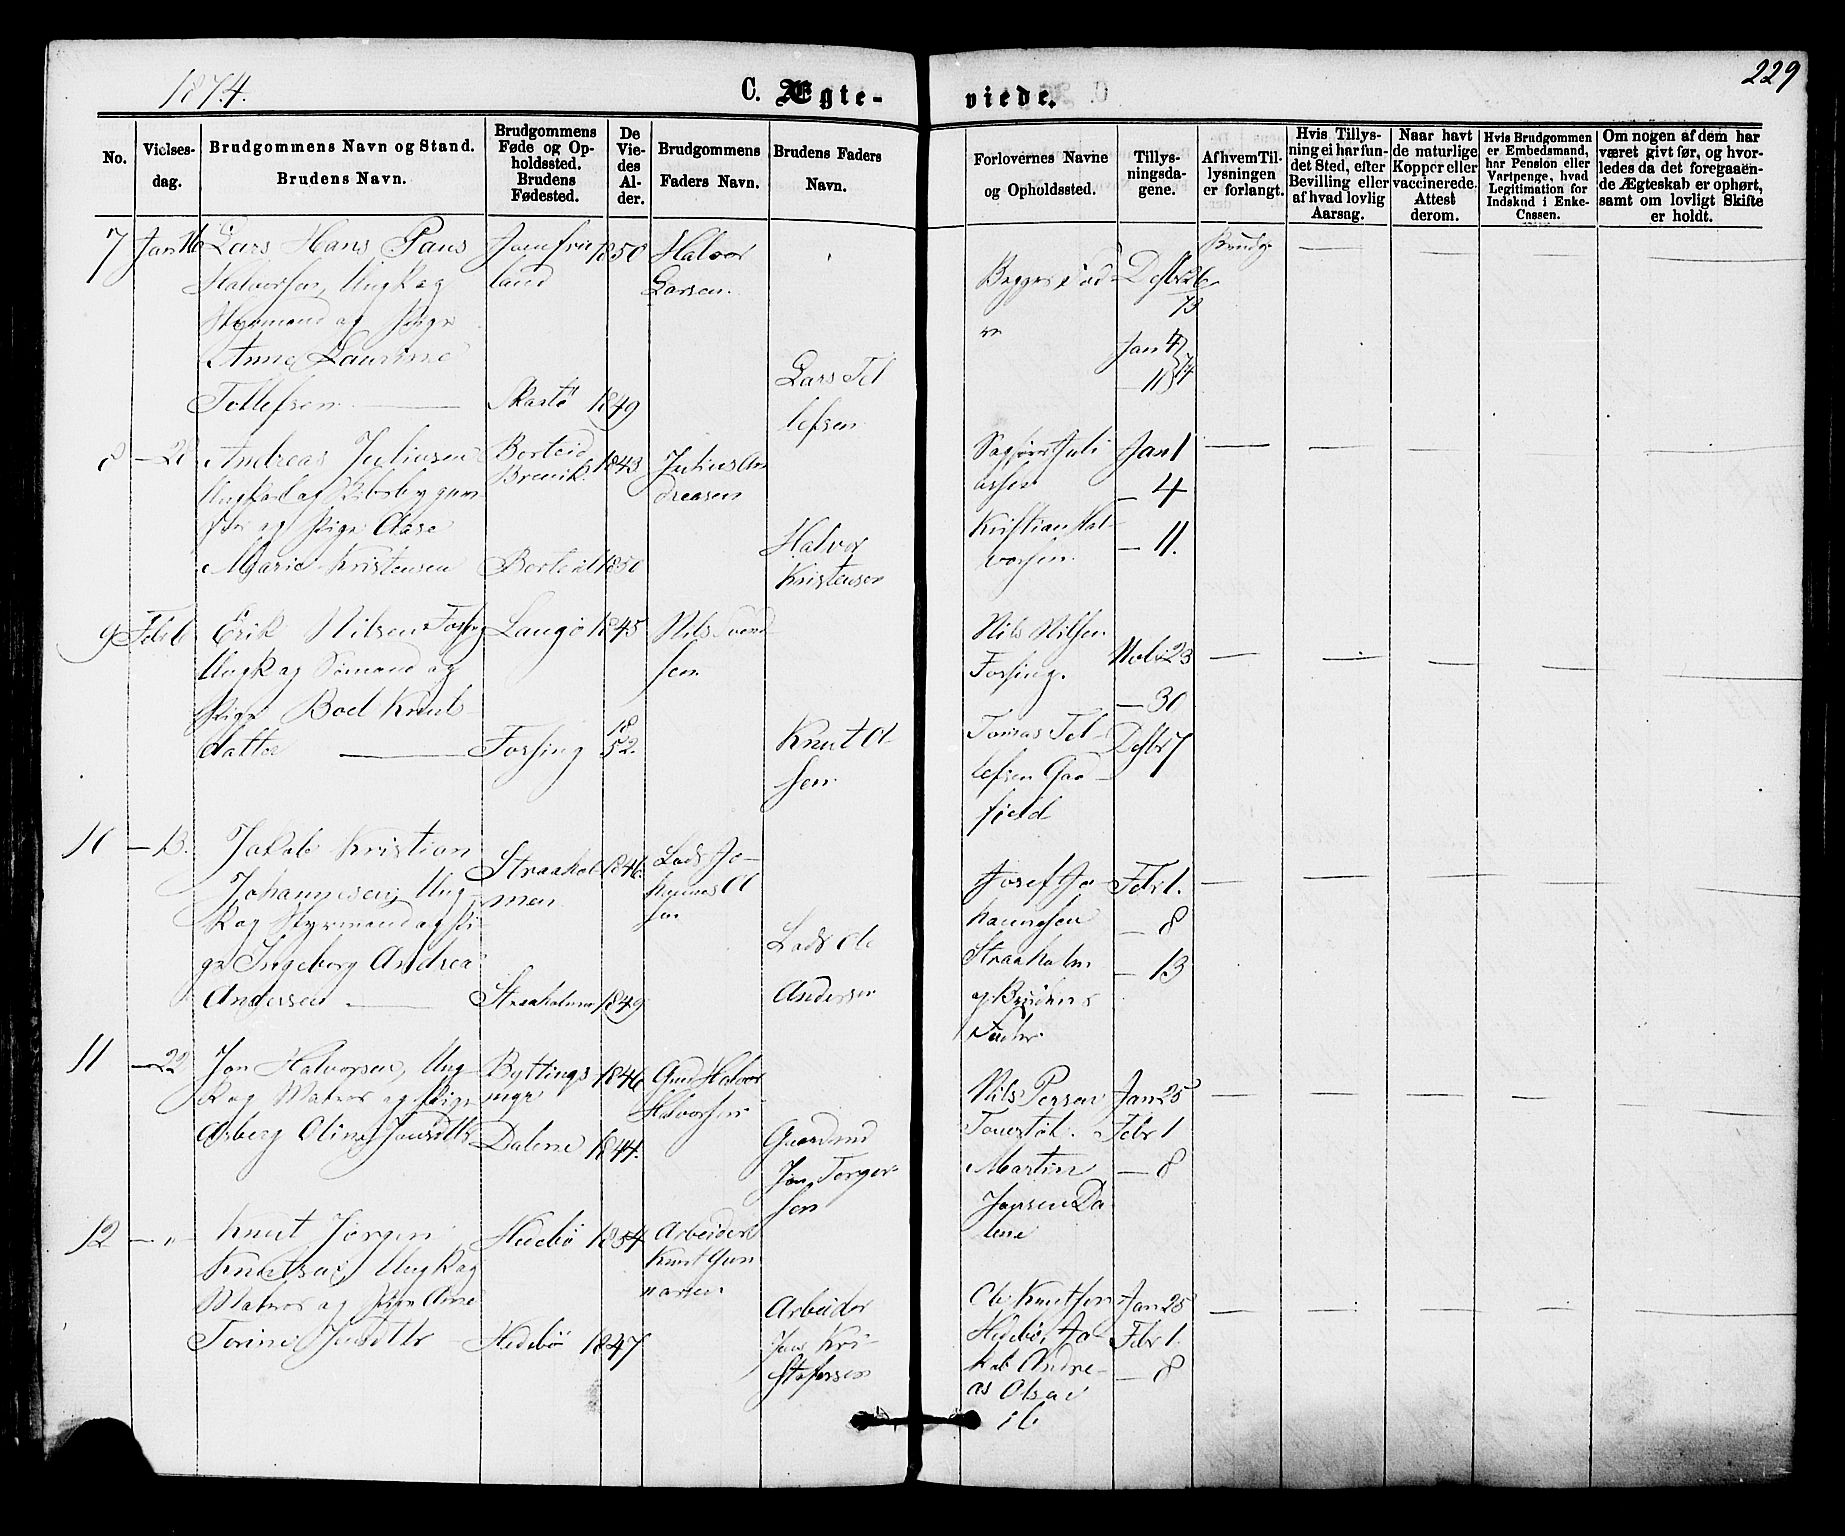 1874.
C. Ægte-
viede.
229
No.
Vielses-
dag.
Brudgommens Navn og Stand.
Brudens Navn.
Brudgommens
Føde og Op-
holdssted.
Brudens
Fødested.
De
Vie-
des
Al-
der.
Brudgommens
Faders Navn.
Brudens Faders
Navn.
Forlovernes Navne
og Opholdssted.
Tillys-
ningsda-
gene.
Af hvem Til-
lysningen
er forlangt.
Hvis Tillys-
ning ei har fun-
det Sted, efter
Bevilling eller
af hvad lovlig
Aarsag.
Naar havt
de naturlige
Kopper eller
vaccinerede.
Attest
derom.
Hvis Brudgommen
er Embedsmand,
har Pension eller
Vartpenge, hvad
Legitimation for
Indskud i Enke-
Cassen.
Om nogen af dem har
været givt før, og hvor-
ledes da det foregaaen-
de Ægteskab er ophørt,
samt om lovligt Skifte
er holdt.
7 Jan 16 Lars Hans Paus
Halvorsen, Ungk og
Styrmand og Pige
Anne Laurine
Tollefsen
Jomfru
land
Skatö
1850
1849
Halvor
Larsen
Lars Tol
lefsen
Begges Fæd
re
Jan 4
— 11
74
Brudg.
8 Andreas Juliusen
og Pige Aase
Marie Kristensen
Brevik
1843
1850
Julius An
dreasen
Halvor
Kristensen
Kristian Hal-
vorsen
Jan 1
— 4
— 11.
9 Febr 6 Erik Nilsen Fossing
Ungk og Sömand og
Pige Boel Knuds
datter
Langö
Fossing
1845
18
52.
Nils Svend
sen
Knut Ol
sen
Nils Nilsen
Fossing.
Tomas Tol-
lefsen Gaa
fjeld
Novbr 23
— 30
Desbr 7
10 — 13. Jakob Kristian
Johannesen, Ung-
k og Styrmand og Pi-
ge Ingeborg Andrea
Andersen
Straahol
men
Straaholmen
1846.
1849
Lods Jo-
hannes Ol
sen
Lods Ole
Andersen
Josef Jo
hannesen
Straaholm
og Brudens
Fader
Febr 1.
— 8
— 13
11 — 22 Jon Halvorsen, Ung-
k og Matros og Pige
Asberg Oline Jonsdtr
Byttings
myr
Dalene
1846
1844.
Gmd Halvor
Halvorsen
Gaardmd
Jon Torger
sen
Nils Persen
Martin
Jonsen Da
lene
Jan 25
Febr 1
— 8
12 — " — Knut Jörgen
Knutsen, Ungk og
Matros og Pige Ane
Torine Jensdtr
Hedebö
Hedebö
1854
1847
Arbeider
Knut Gun
narsen
Arbeider
Jens Kri-
stofersen
Ole Knutsen
Hedebö, Ja
kob Andre-
as Olsen
ib
Jan 25
Febr 1.
— 8